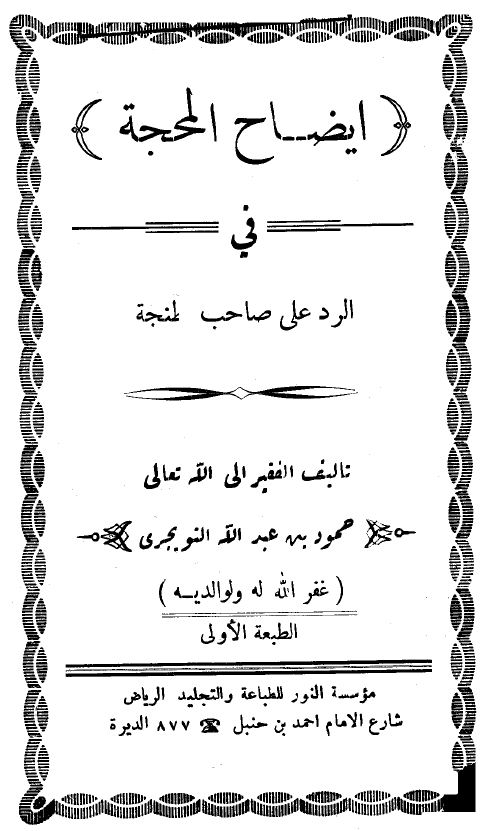 ﴿ ايضــاح المحجة ﴾
في
الرد على صاحب لمنجة
تاليف الفقير الى الله تعالى
حمود بن عبد الله التويجرى
( غفر الله له ولوالديـه )
الطبعة الأولى
مؤسسة النور للطباعة والتجليد الرياض
شارع الامام احمد بن حنبل ☎ ٨٧٧ الديرة